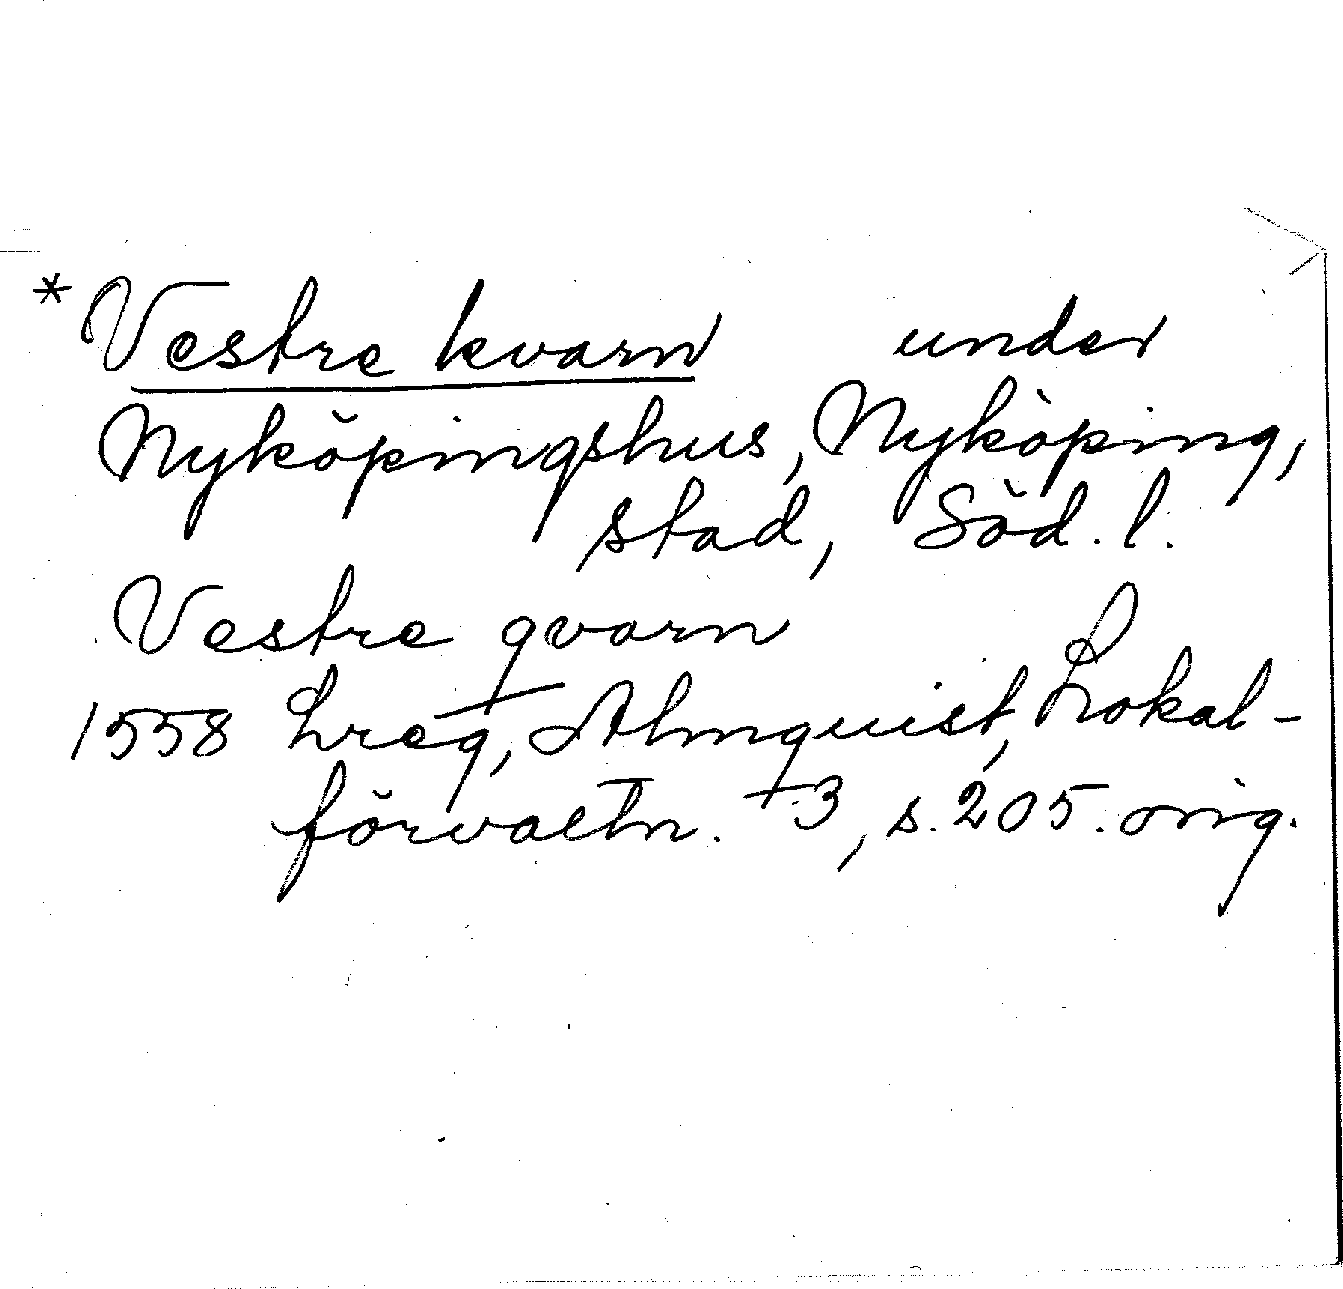 * Vestre kvarn under
Nyköpingshus, Nyköping,
stad, Söd. l.
Vestre qvarn
1558 Lreg, Almquist, Lokal-
förvaltn. 3, s. 205. orig.